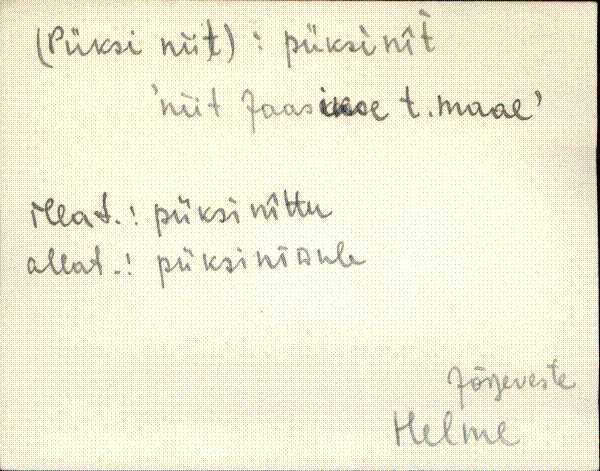 (Püksi niit) : püksinît̀
'niit Jaasikse t. maae'
illat. : püksinîttu
allat. : püksinîᴅule
Jõgeveste
Helme